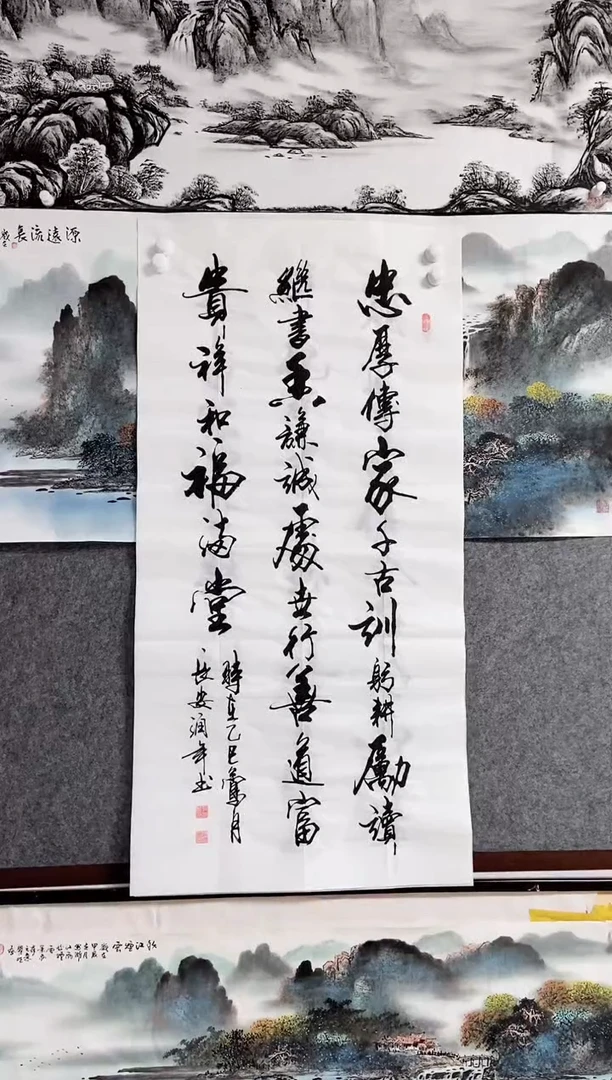 忠厚傳家千古訓躬耕勵讀
繼書香謙誠處世行善道富
貴祥和福滿堂
時在乙巳蒲月
長安潤年書
源遠流長